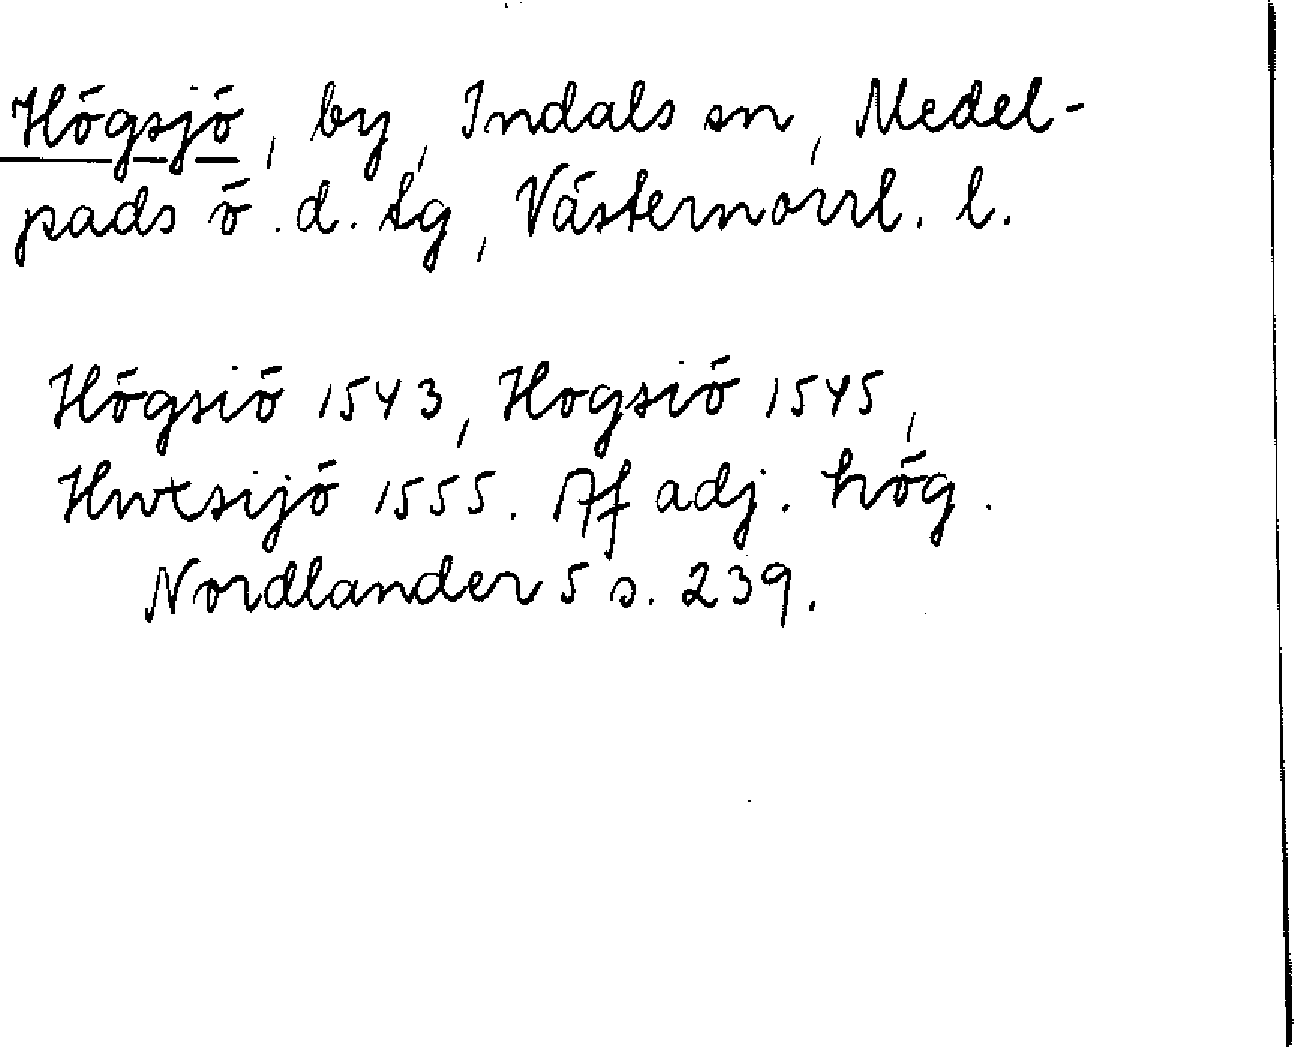 Högsjö, by, Indals sn, Medel-
pads ö. d. tg, Västernorrl. l.
Högsiö 1543, Hogsiö 1545,
Hwtsijö 1555. Af adj. hög.
Nordlander 5 s. 239.